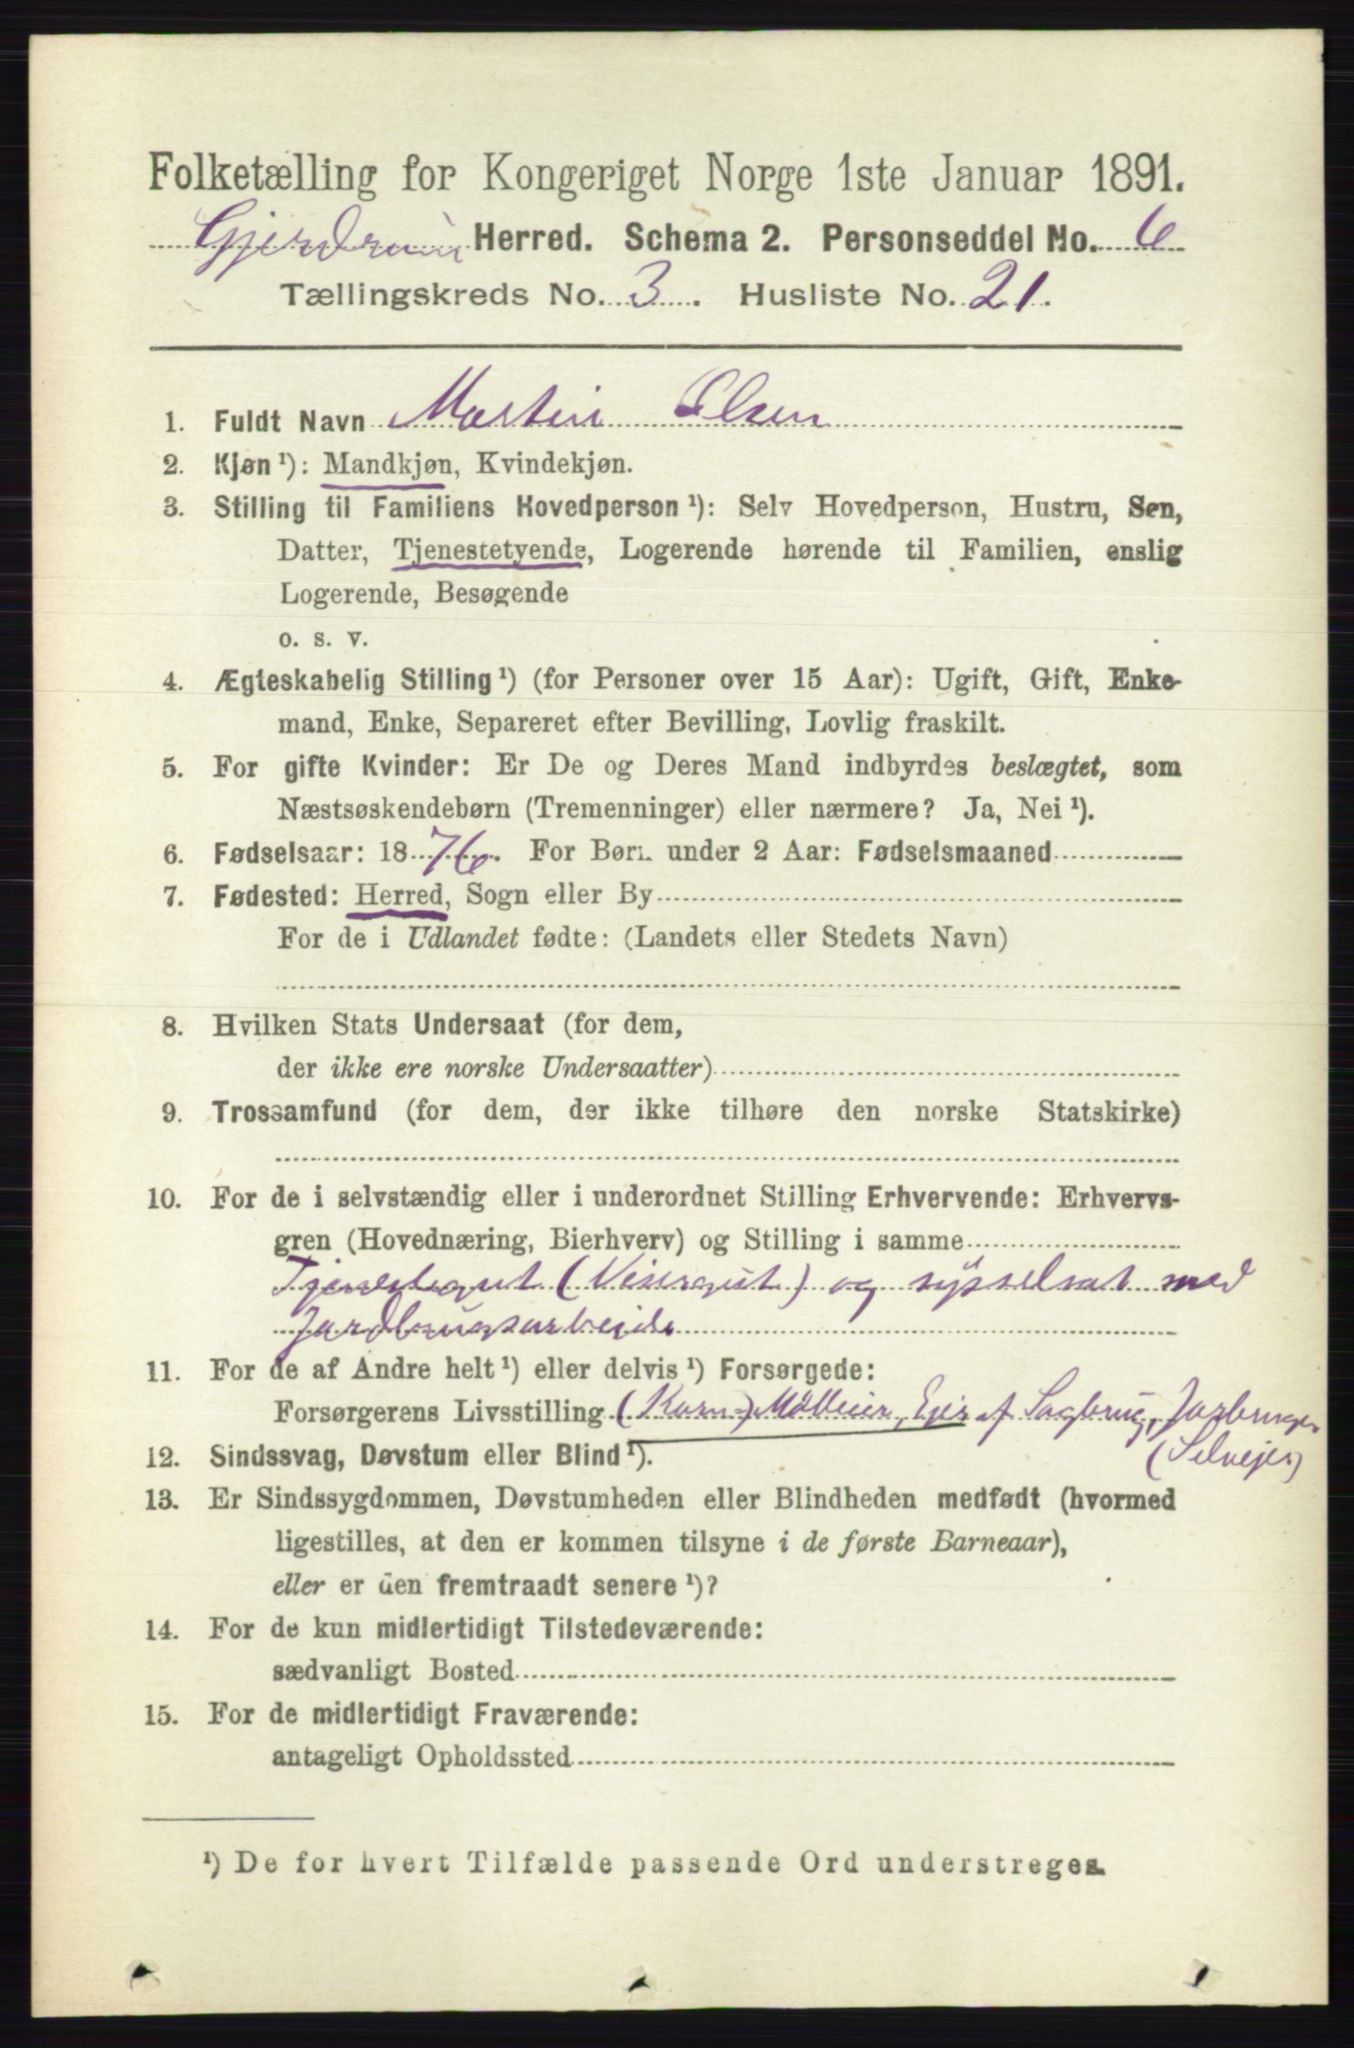 Folketælling for Kongeriget Norge 1ste Januar 1891.
Gjerdrum Herred. Schema 2. Personseddel No. 6
Tællingskreds No. 3. Husliste No. 21.
1. Fuldt Navn Martin Olsen
2. Kjøn ¹): Mandkjøn, Kvindekjøn.
3. Stilling til Familiens Hovedperson ¹): Selv Hovedperson, Hustru, Søn,
Datter, Tjenestetyende, Logerende hørende til Familien, enslig
Logerende, Besøgende
o. s. v.
4. Ægteskabelig Stilling ¹) (for Personer over 15 Aar): Ugift, Gift, Enke-
mand, Enke, Separeret efter Bevilling, Lovlig fraskilt.
5. For gifte Kvinder: Er De og Deres Mand indbyrdes beslægtet, som
Næstsøskendebørn (Tremenninger) eller nærmere? Ja, Nei ¹).
6. Fødselsaar: 1876. For Børn under 2 Aar: Fødselsmaaned
7. Fødested: Herred, Sogn eller By
For de i Udlandet fødte: (Landets eller Stedets Navn)
8. Hvilken Stats Undersaat (for dem,
der ikke ere norske Undersaatter)
9. Trossamfund (for dem, der ikke tilhøre den norske Statskirke)
10. For de i selvstændig eller i underordnet Stilling Erhvervende: Erhvervs-
gren (Hovednæring, Bierhverv) og Stilling i samme
Tjenestegut (Visergut) og sysselsat med
Jordbrugsarbeide
11. For de af Andre helt ¹) eller delvis ¹) Forsørgede:
Forsørgerens Livsstilling (Korn-) Mølleier, Ejer af Sagbrug, Jorbruger
(Selvejer)
12. Sindssvag, Døvstum eller Blind ¹).
13. Er Sindssygdommen, Døvstumheden eller Blindheden medfødt (hvormed
ligestilles, at den er kommen tilsyne i de første Barneaar),
eller er den fremtraadt senere ¹)?
14. For de kun midlertidigt Tilstedeværende:
sædvanligt Bosted
15. For de midlertidigt Fraværende:
antageligt Opholdssted
¹) De for hvert Tilfælde passende Ord understreges.